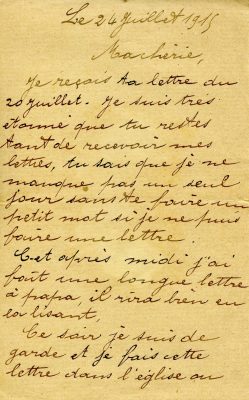 Le 24 Juillet 1915
Ma chérie,
Je reçois ta lettre du
20 juillet. Je suis très
étonné que tu restes
tant de recevoir mes
lettres, tu sais que je ne
manque pas un seul
jour sans te faire un
petit mot si je ne puis
faire une lettre.
Cet après midi j'ai
fait une longue lettre
à papa, il rira bien en
la lisant,
Ce soir je suis de
garde et je fais cette
lettre dans l'église ou